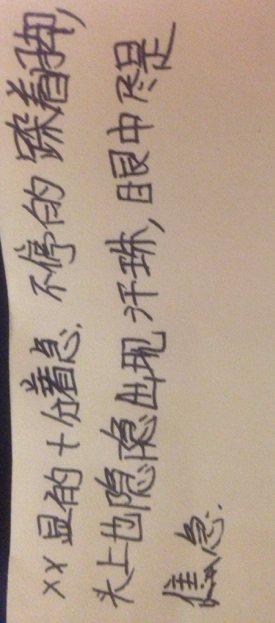 xx 显的十分着急. 不停的跺着脚,
头上也隐隐出现汗珠, 眼中尽是
焦急.